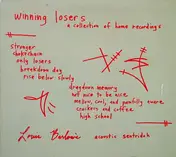 winning losers
a collection of home recordings
stronger
shokrichah
only losers
breakdown day
rise below slowly
dragdown memory
not nice to be nice
mellow, cool, and painfully aware
crackers and coffee
high school
Louis Barlow's acoustic sentridoh